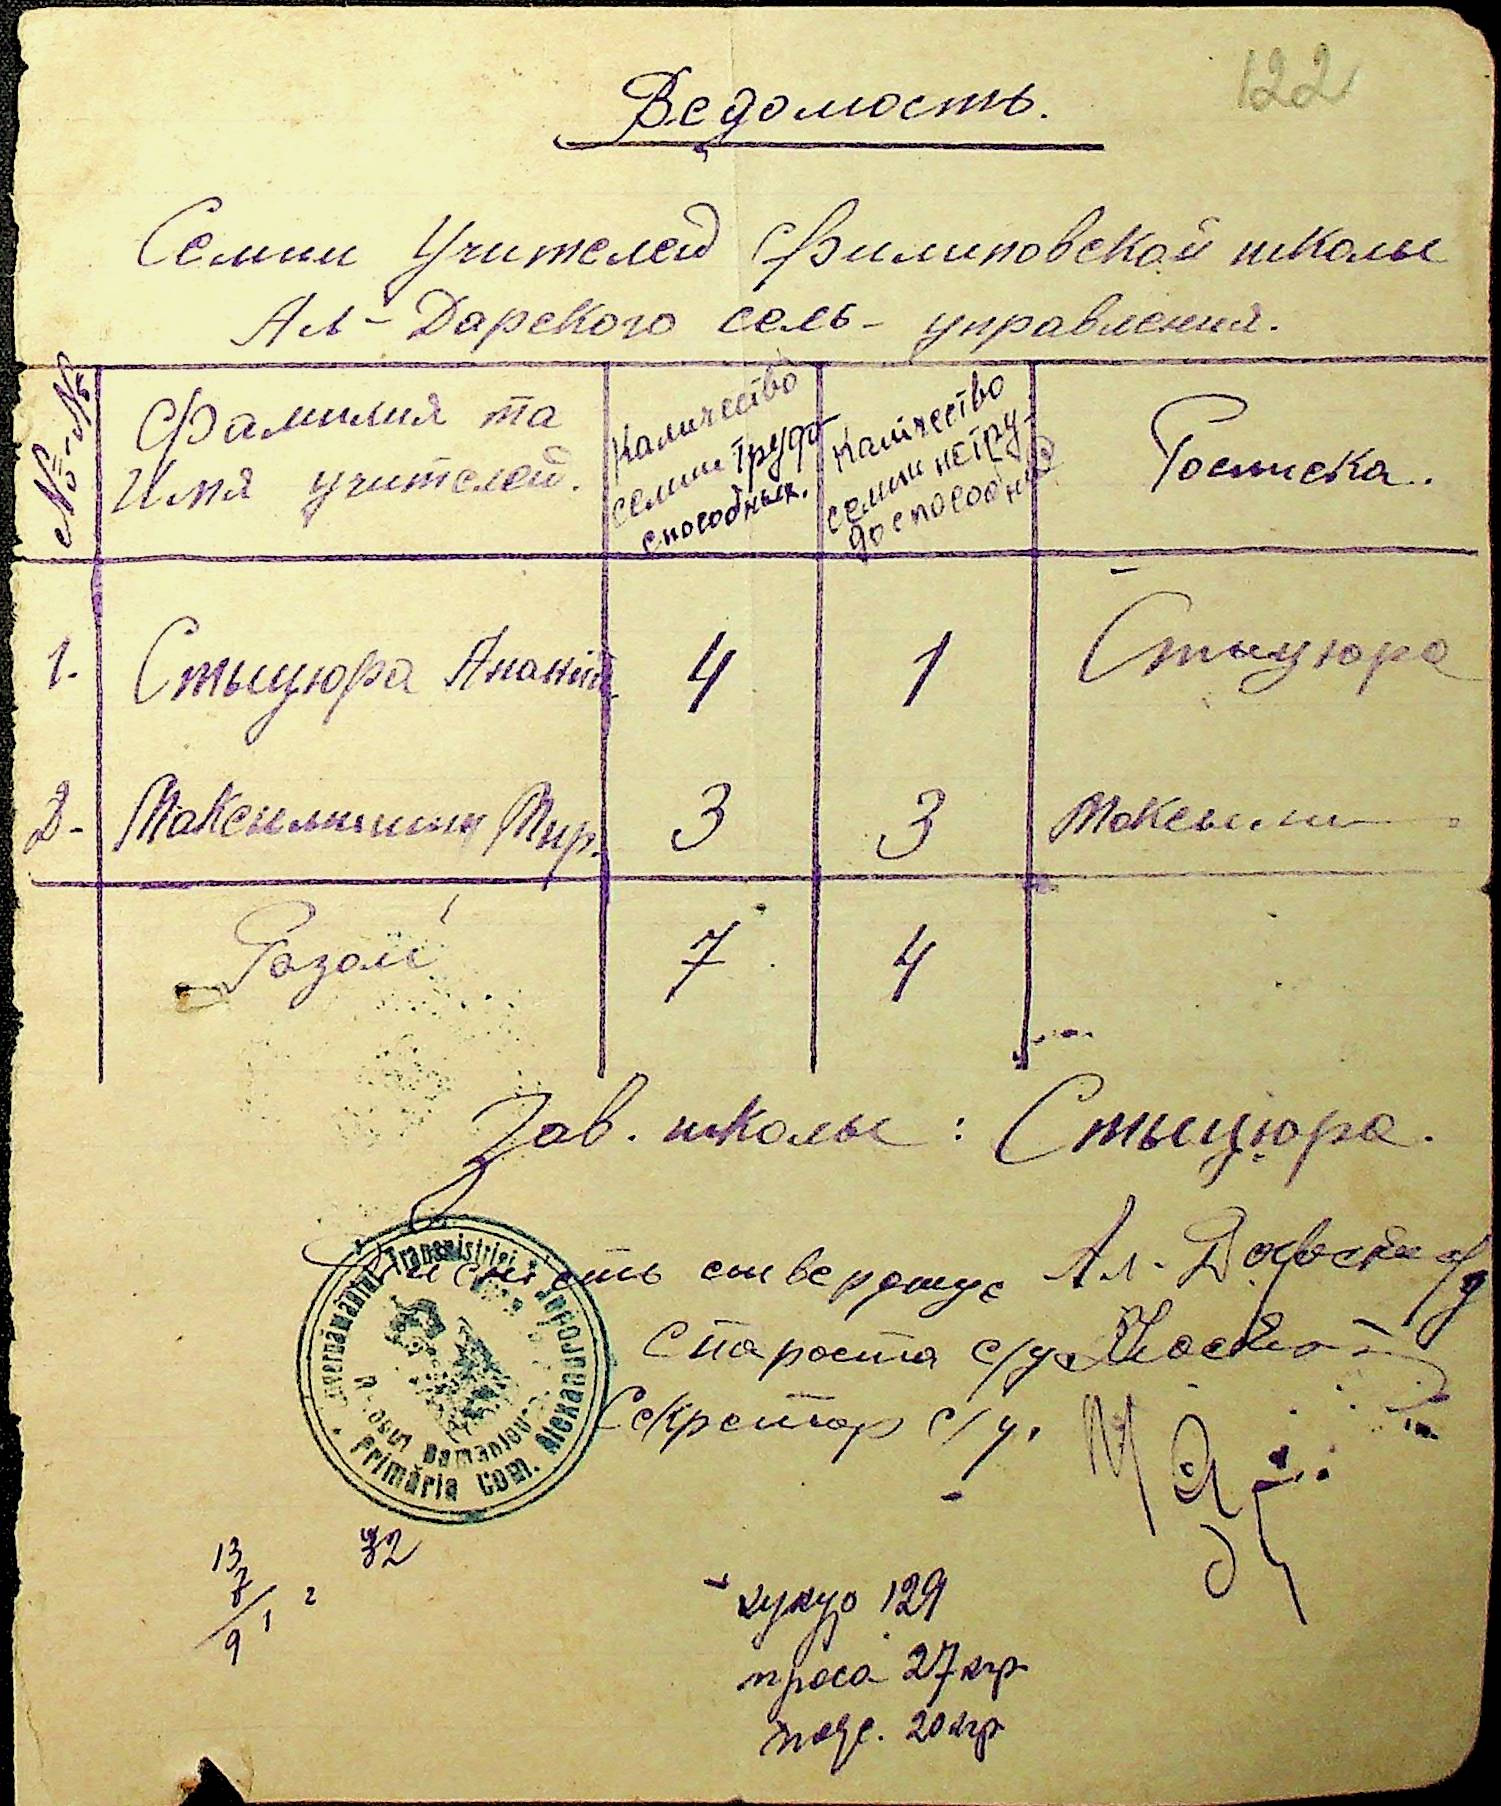 122
Ведомость.
Семии Учителей Филиповской школы
Ал-Дарского сель-управления.
№ № Фамилия та Имя учителей. Каличество семии трудо способных. Калічество семии нетрудоспособных Росписка.
1. Стыцюра Ананій 4 1 Стыцюра
2- Максимишин Мир. 3 3 Максими
Разом 7 4
Зав. школы: Стыцюра.
стверджує Ал. Даровский
Староста с/у
Секретар с/у.
Guvernământul Transnistriei
Primăria Com. Alexandrodar
13 32
7
9 1 2
кукур 129
проса 27 кгр
пояс. 20 кгр